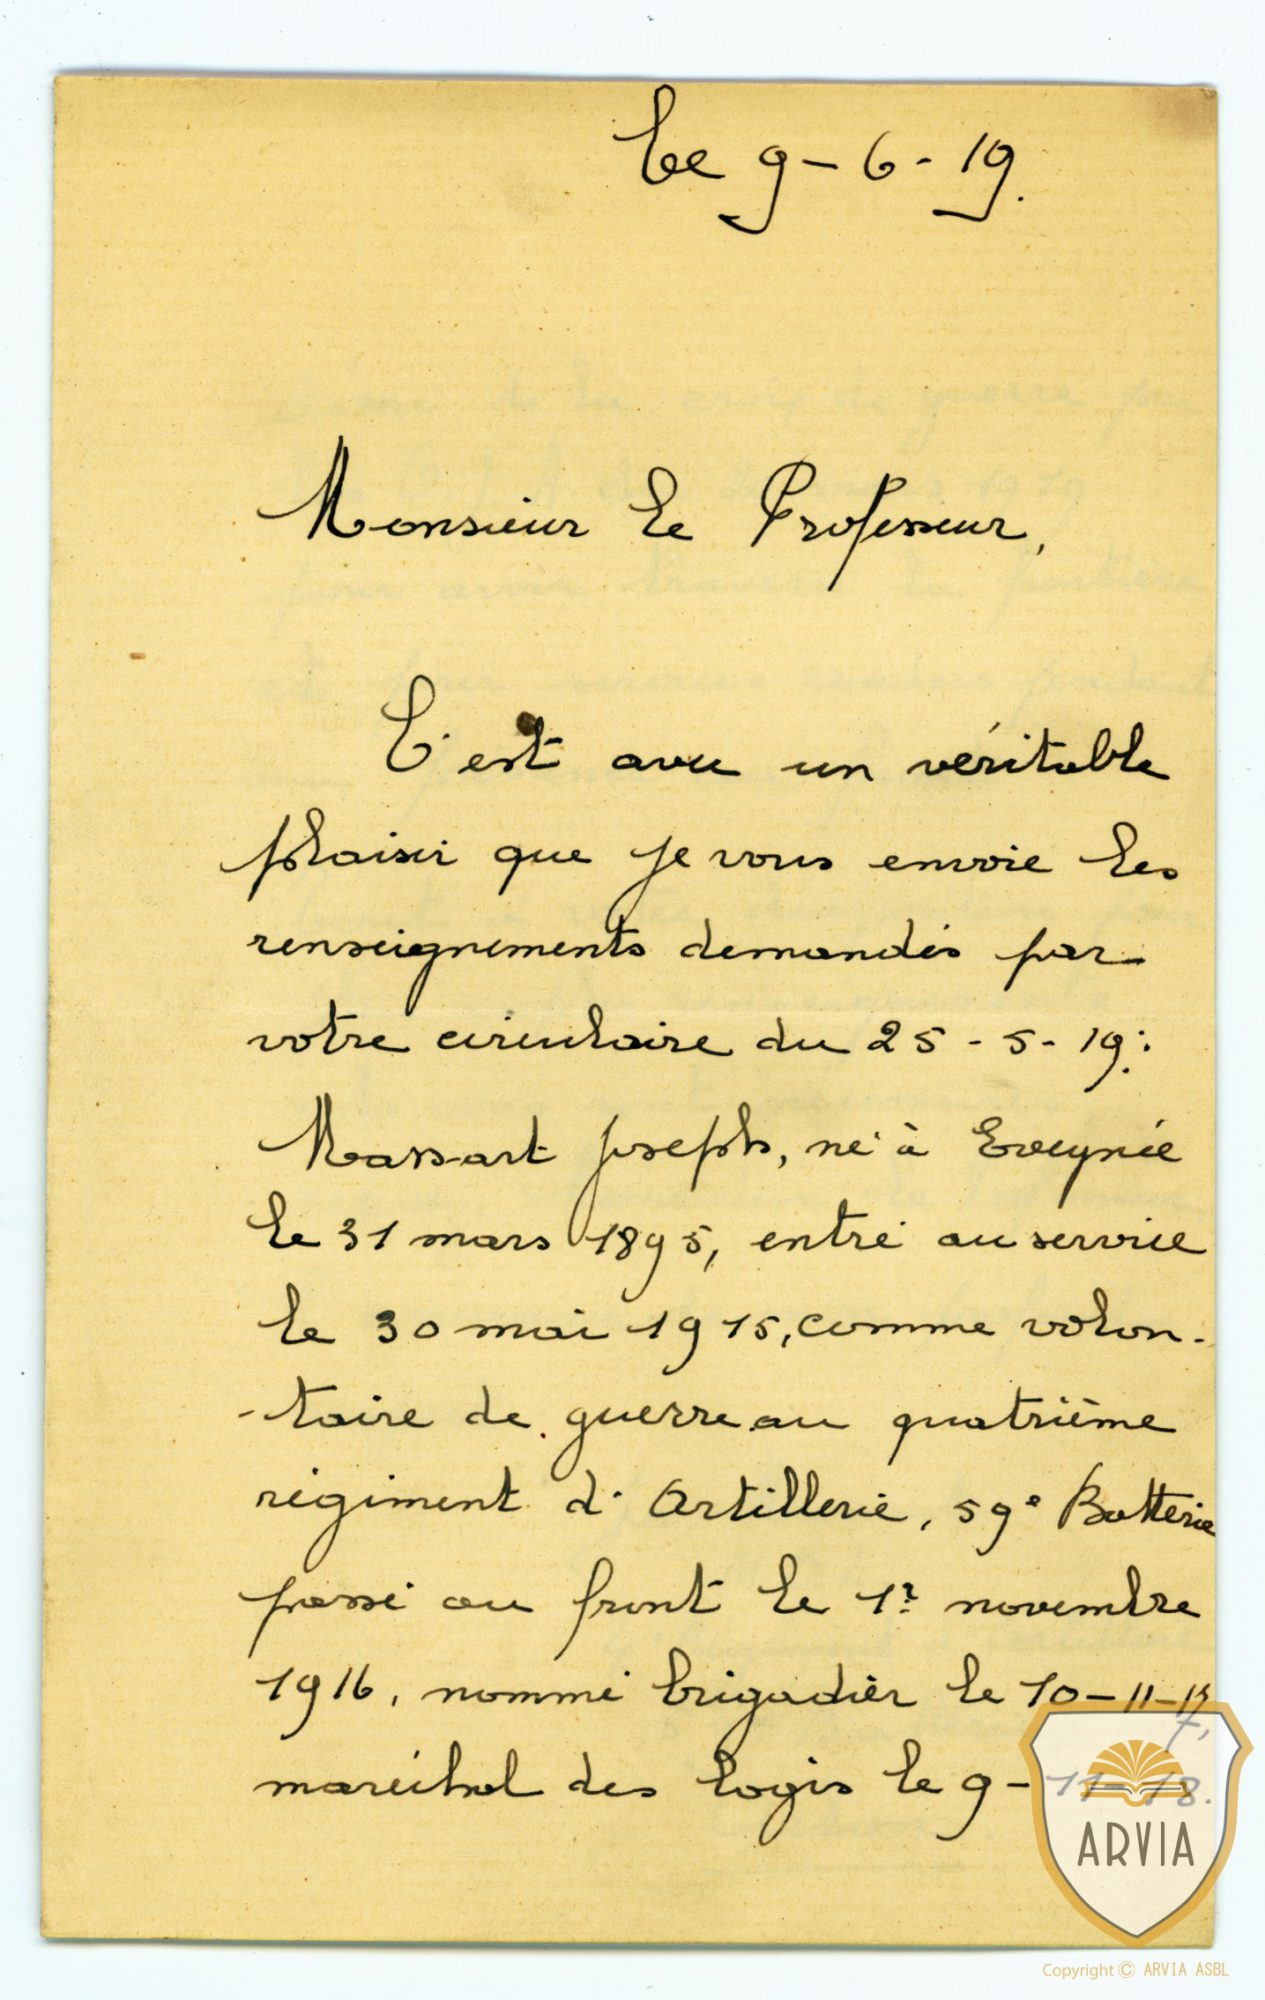 Le 9-6-19.
Monsieur le Professeur,
C'est avec un véritable
plaisir que je vous envoie les
renseignements demandés par
votre circulaire du 25-5-19:
Massart Joseph, né à Evegnée
le 31 mars 1895, entré au service
le 30 mai 1915, comme volon-
-taire de guerre au quatrième
régiment d'Artillerie, 59e Batterie
passé au front le 1r novembre
1916, nommé brigadier le 10-11-17,
maréchal des logis le 9-11-18.
ARVIA
Copyright © ARVIA ASBL